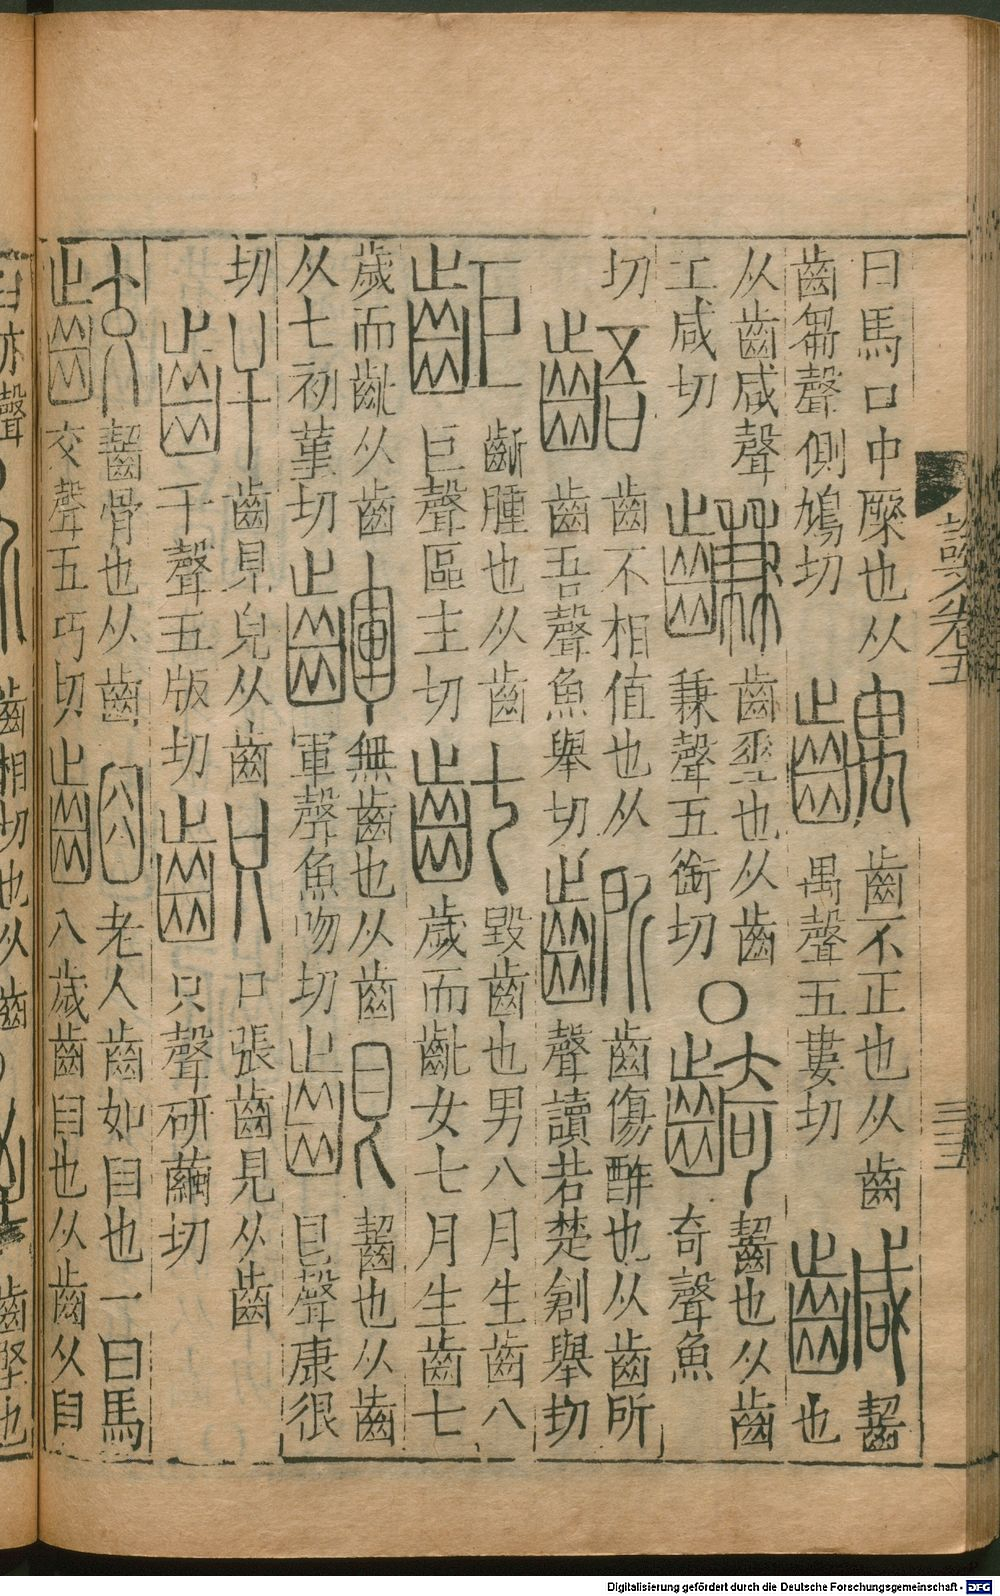 曰馬口中橜也从齒芻聲側鳩切 齵 齒不正也从齒禺聲五婁切 𪘪 齧也
从齒咸聲工咸切 𪙊 齒差也从齒兼聲五銜切 ○ 齮 齧也从齒奇聲魚
切 齬 齒不相值也从齒吾聲魚舉切 齭 齒傷酢也从齒所聲讀若楚創舉切
齗腫也从齒巨聲區主切 齔 毀齒也男八月生齒八歲而齔女七月生齒七
歲而齔从齒从七初菫切 齳 無齒也从齒軍聲魚吻切 齦 齧也从齒皀聲康很
切 齒見皃从齒干聲五版切 口張齒見从齒只聲研繭切
齩 齧骨也从齒交聲五巧切 齨 老人齒如臼也一曰馬八歲齒臼也从齒从臼
臼亦聲 齒相切也从齒 齒堅也
說文卷五
Digitalisierung gefördert durch die Deutsche Forschungsgemeinschaft - DFG